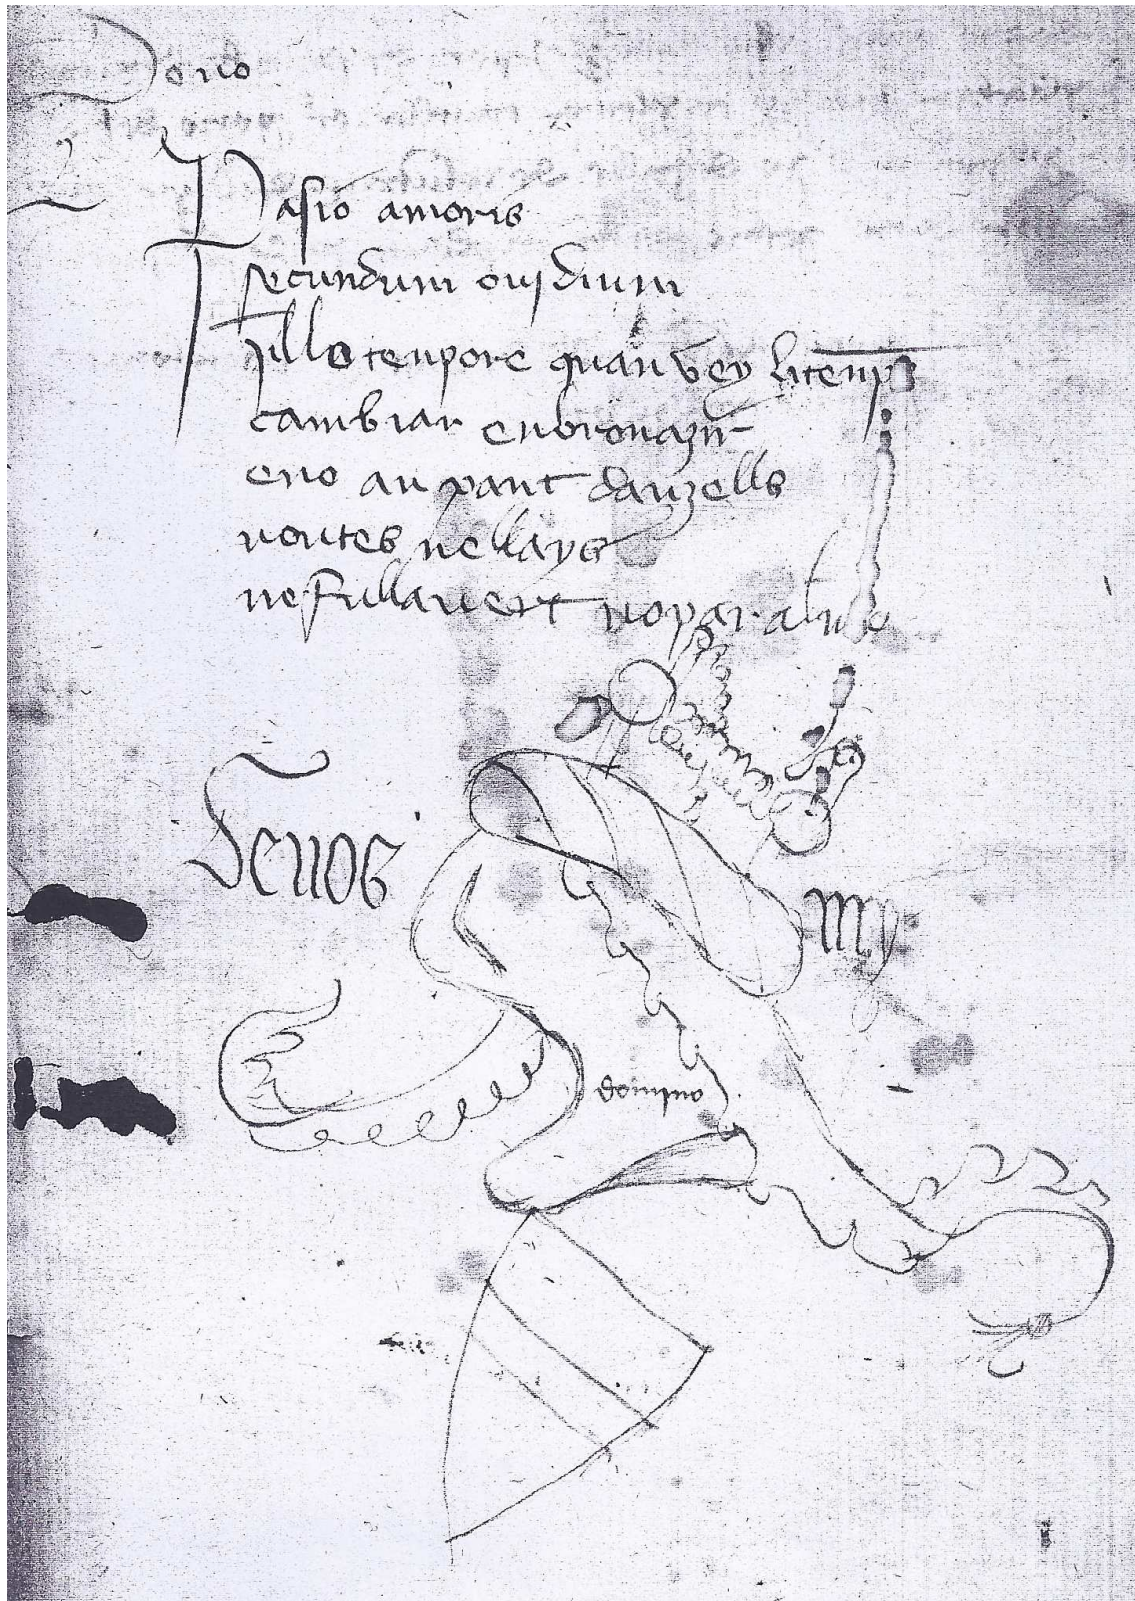 Dono
Pasio amoris
secundum ouydium
Jillo tenpore quan vey li tenps
cambiar enbronazir
eno au xant dauzells
noutes nellays
nefullauert nopar
Senos
my
domyno